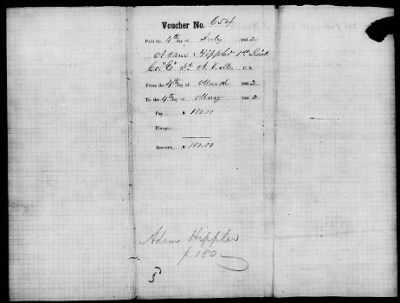 Voucher No. 654
Paid the 4th day of July 1862
Adam Hippler 1st Lieut
Co. "C"
From the 4th day of March 1862
To the 4th day of May 1862
Pay, $ 180.00
Forage,
Amount, $ 180.00
Adam Hippler
$180